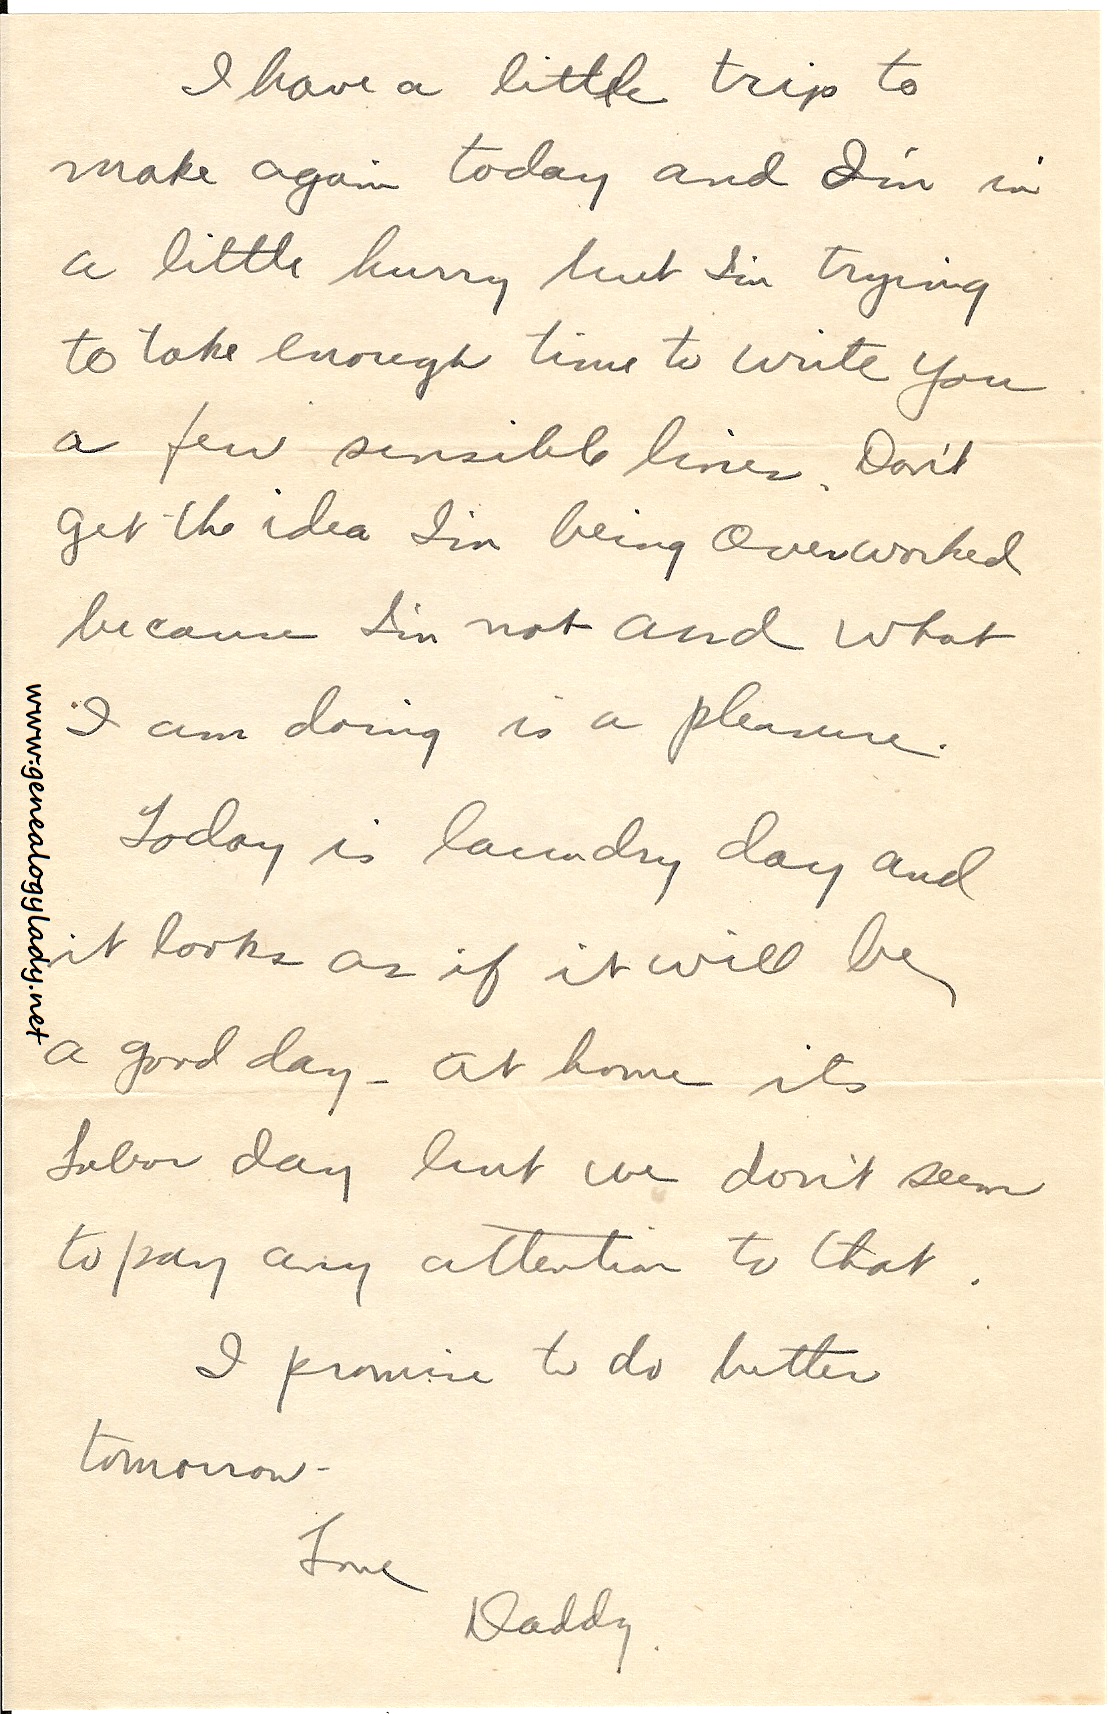 I have a little trip to
make again today and I'm in
a little hurry but I'm trying
to take enough time to write you
a few sensible lines. Don't
get the idea I'm being overworked
because I'm not and what
I am doing is a pleasure.
Today is laundry day and
it looks as if it will be
a good day - at home its
Labor day but we don't seem
to pay any attention to that.
I promise to do better
tomorrow -
Love
Daddy.
www.genealogylady.net